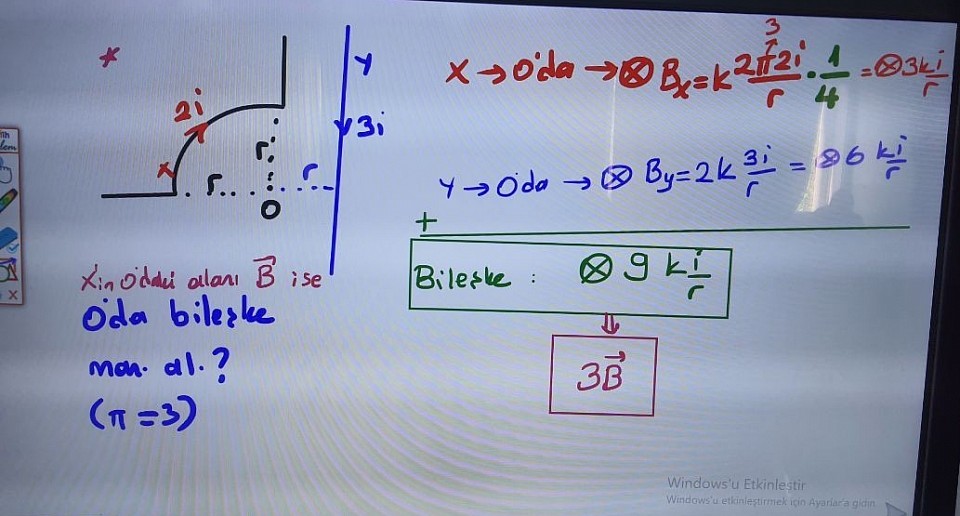 *
2i
x
r
r
r
O
Y
3i
X'in O'daki alanı B⃗ ise
O'da bileşke
man. al.?
(π = 3)
X → O'da → ⊗ Bx = k 2π2i/r · 1/4 = ⊗ 3k i/r
3
Y → O'da → ⊗ By = 2k 3i/r = ⊗ 6 k i/r
+
Bileşke : ⊗ 9 k i/r
⇓
3B⃗
Windows'u Etkinleştir
Windows'u etkinleştirmek için Ayarlar'a gidin.